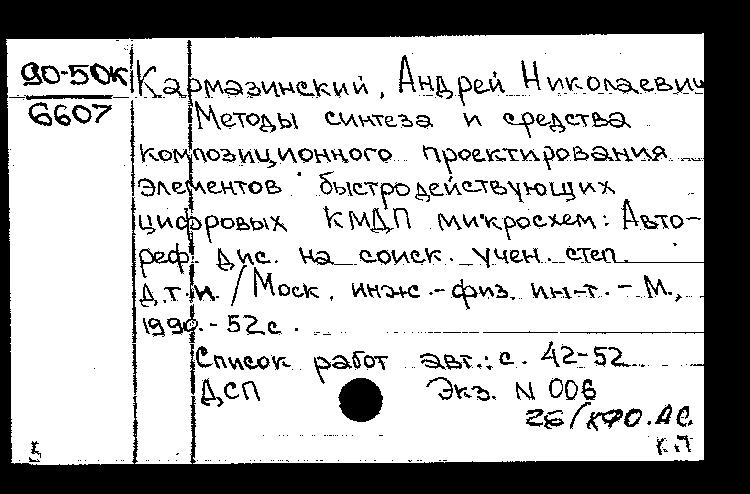 90-5ОК
6607
Кармазинский, Андрей Николаевич
Методы синтеза и средства
композиционного проектирования
элементов быстродействующих
цифровых КМДП микросхем: Авто-
реф. дис. на соиск. учен. степ.
д.т.н. / Моск. инж.-физ. ин-т. - М.,
1990. - 52с.
Список работ авт.: с. 42-52
ДСП Экз. N 006